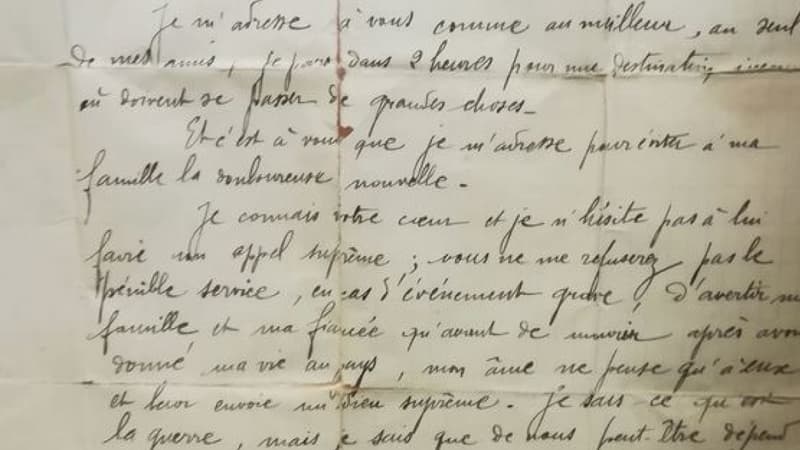 Je m'adresse à vous comme au meilleur, au seul
de mes amis, je pars dans 2 heures pour une destination
où doivent se passer de grandes choses_
Et c'est à vous que je m'adresse pour éviter à ma
famille la douloureuse nouvelle_
Je connais votre cœur et je n'hésite pas à lui
faire un appel suprême ; vous ne me refuserez pas le
pénible service, en cas d'événement grave, d'avertir ma
famille et ma fiancée qu'avant de mourir après avoir
donné ma vie au pays, mon âme ne pense qu'à eux
et leur envoie un adieu suprême. Je sais ce qu'est
la guerre, mais je sais que de nous peut-être dépend